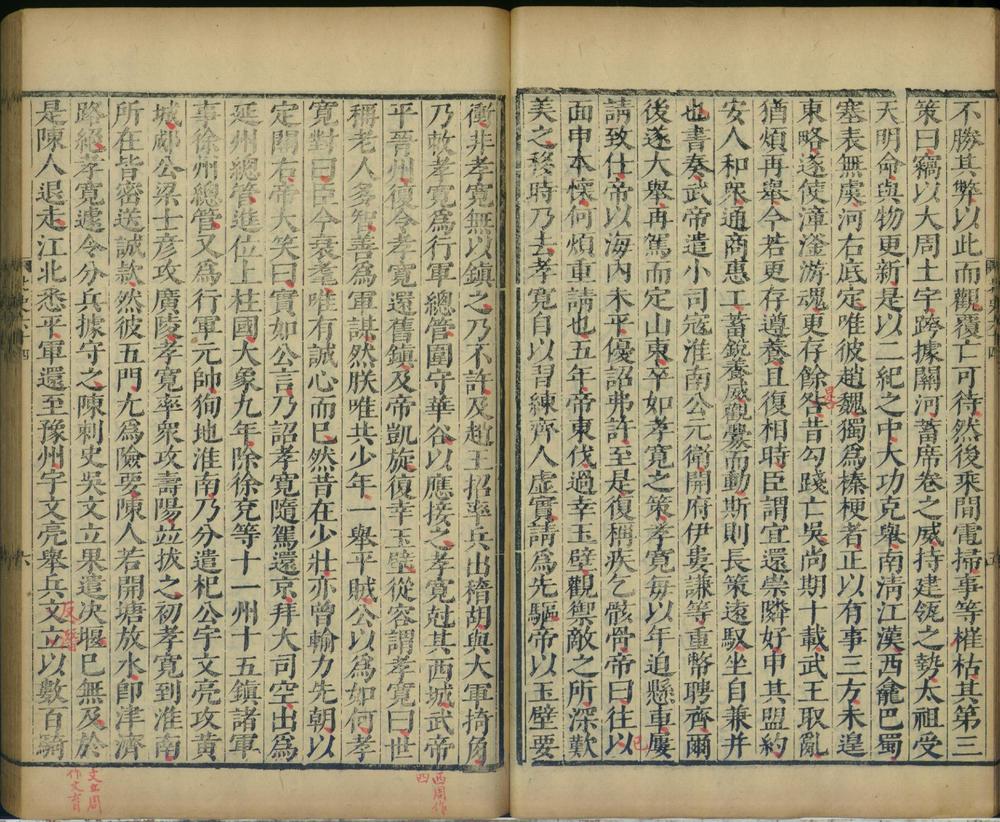 不勝其弊以此而觀覆亡可待然後乘間電掃事等摧枯其第三
策曰竊以大周土宇跨據關河蓄席卷之威持建瓴之勢太祖受
天明命與物更新是以二紀之中大功克舉南清江漢西龕巴蜀
塞表無虞河右底定唯彼趙魏獨爲榛梗者正以有事三方未遑
東略遂使漳滏游魂更存餘咎昔勾踐亡吳尚期十載武王取亂
猶煩再舉今若更存遵養且復相時臣謂宜還崇隣好申其盟約
安人和衆通商惠工蓄銳養威觀釁而動斯則長策遠馭坐自兼并
也書奏武帝遣小司寇淮南公元衛開府伊婁謙等重幣聘齊爾
後遂大舉再駕而定山東卒如孝寬之策孝寬每以年迫懸車屢
請致仕帝以海內未平優詔弗許至是復稱疾乞骸骨帝曰往以
面申本懷何煩重請也五年帝東伐過幸玉壁觀禦敵之所深歎
美之移時乃去孝寬自以習練齊人虛實請爲先驅帝以玉壁要
衝非孝寬無以鎮之乃不許及趙王招率兵出稽胡與大軍掎角
乃敕孝寬爲行軍總管圍守華谷以應接之孝寬尅其西城武帝
平晉州復令孝寬還舊鎮及帝凱旋復幸玉壁從容謂孝寬曰世
稱老人多智善爲軍謀然朕唯共少年一舉平賊公以爲如何孝
寬對曰臣今衰耄唯有誠心而已然昔在少壯亦曾輸力先朝以
定關右帝大笑曰實如公言乃詔孝寬隨駕還京拜大司空出爲
延州總管進位上柱國大象九年除徐兗等十一州十五鎮諸軍
事徐州總管又爲行軍元帥狥地淮南乃分遣杞公宇文亮攻黃
城郕公梁士彥攻廣陵孝寬率衆攻壽陽並拔之初孝寬到淮南
所在皆密送誠款然彼五門尢爲險要陳人若開塘放水卽津濟
路絕孝寬遽令分兵據守之陳刺史吳文立果遣決堰已無及於
是陳人退走江北悉平軍還至豫州宇文亮舉兵反立以數百騎
西周作
四
文立周
作文育